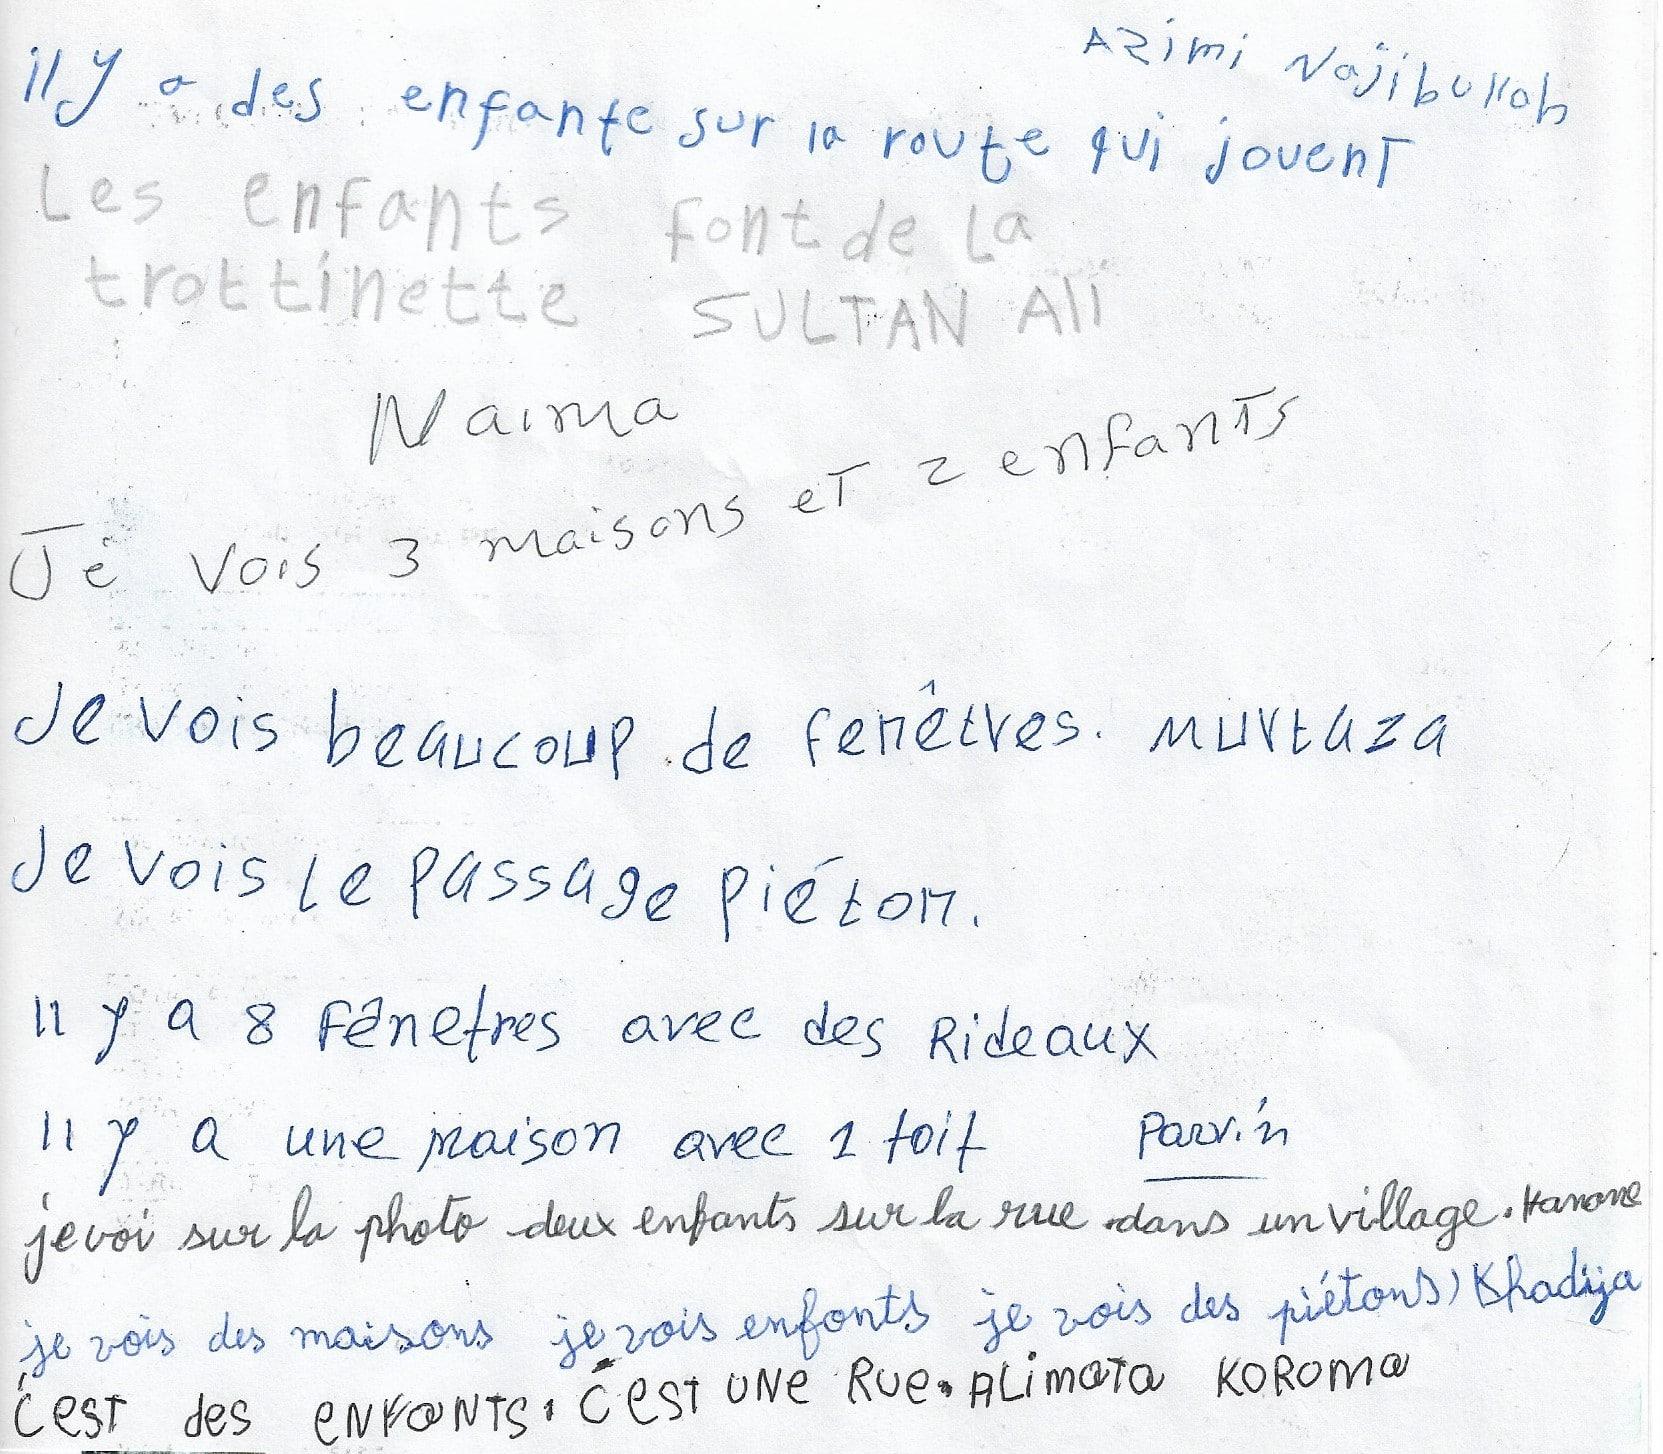 Azimi Najibullah
il y a des enfante sur la route qui jouent
Les enfants font de la
trottinette SULTAN Ali
Naima
Je vois 3 maisons et 2 enfants
Je vois beaucoup de fenêtres. Murtaza
Je vois le passage piéton.
Il y a 8 Fênetres avec des Rideaux
Il y a une maison avec 1 toit Parvin
je voi sur la photo deux enfants sur la rue dans un village. Hanane
je vois des maisons je vois enfonts je vois des piétons) Khadija
C'est des ENFANTS. C'est UNe Rue. ALimata KOROMA